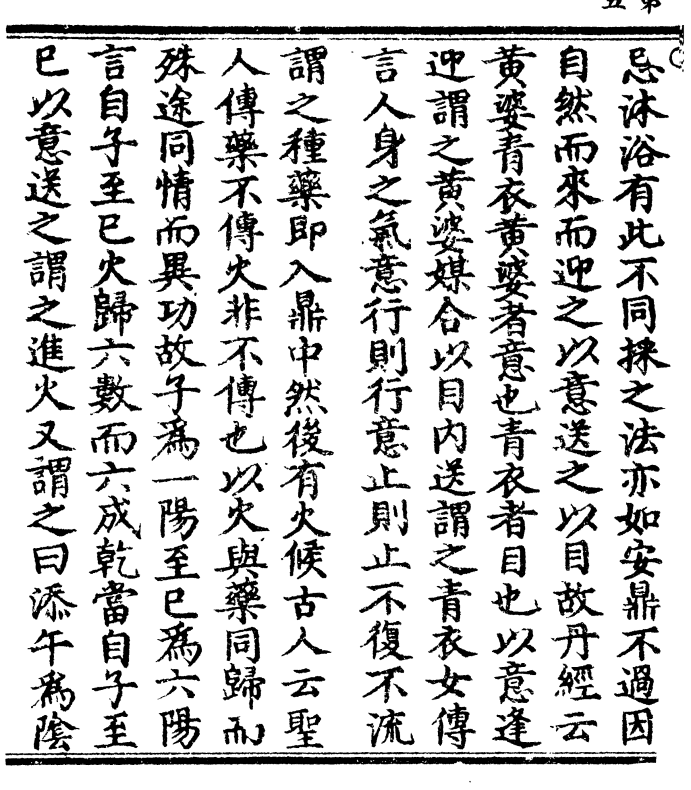 忌沐浴有此不同採之法亦如安鼎不過因
自然而來而迎之以意送之以目故丹經云
黃婆青衣黃婆者意也青衣者目也以意逢
迎謂之黃婆媒合以目內送謂之青衣女傳
言人身之氣意行則行意止則止不復不流
謂之種藥即入鼎中然後有火候古人云聖
人傳藥不傳火非不傳也以火與藥同歸而
殊途同情而異功故子為一陽至巳為六陽
言自子至巳火歸六數而六成乾當自子至
巳以意送之謂之進火又謂之曰添午為陰